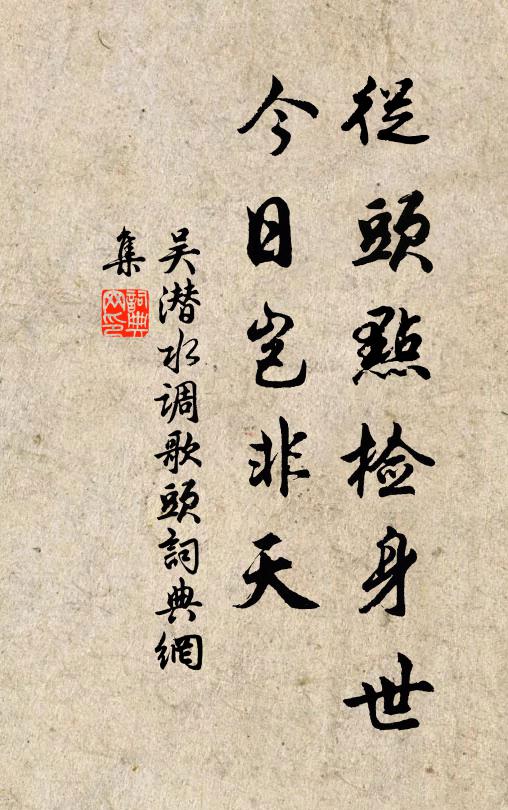 從頭點检身世
今日岂非天
吴潜水调歌頭詞典網
集
詞典網印